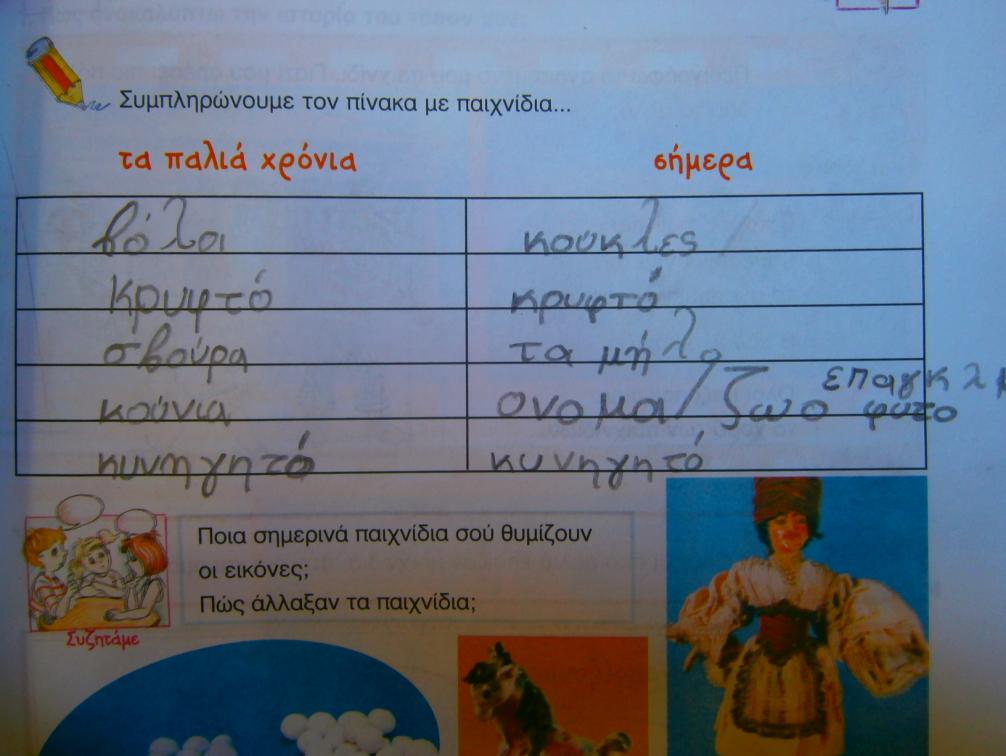 Συμπληρώνουμε τον πίνακα με παιχνίδια...
τα παλιά χρόνια σήμερα
βόλοι κούκλες
κρυφτό κρυφτό
σβούρα τα μήλα
κούνια ονομα/ζωο επαγκλμ φυτο
κυνηγητό κυνηγητό
Ποια σημερινά παιχνίδια σού θυμίζουν
οι εικόνες;
Πώς άλλαξαν τα παιχνίδια;
Συζητάμε